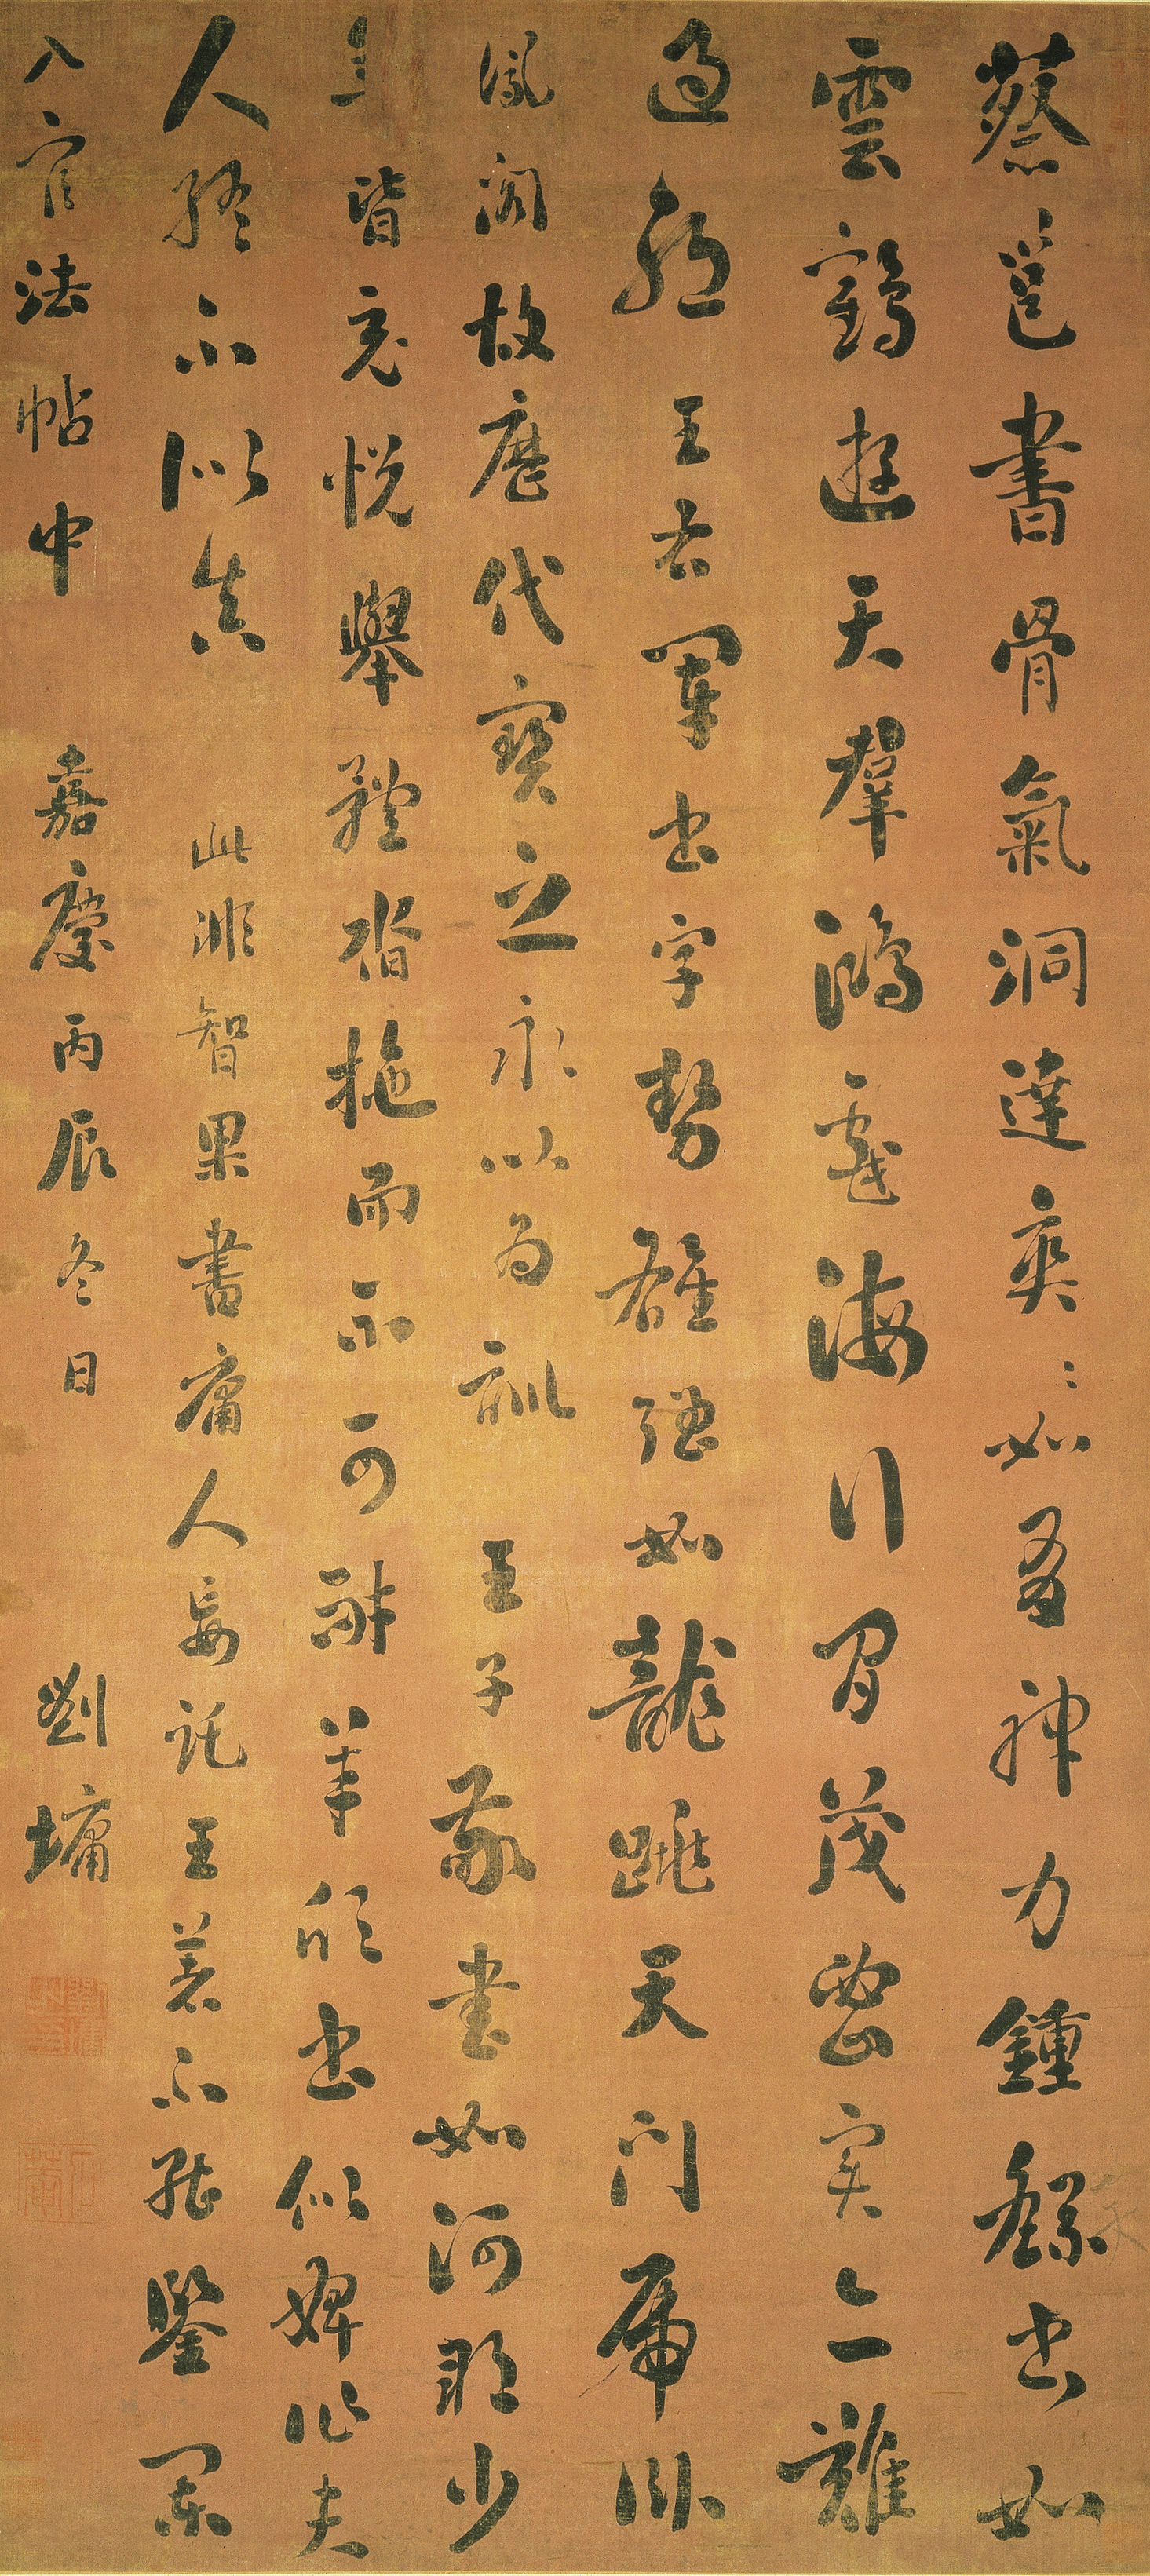 蔡邕書骨氣洞達爽〻如有神力鍾繇書如
雲鶴遊天羣鴻戲海行間茂密實亦難
過耶 王右軍書字勢雄強如龍跳天門虎臥
鳳閣故歷代寶之永以為訓 王子敬書如河朔少
年皆充悅舉體沓拖而不可耐 羊欣書似婢作夫
人終不似真 此非智果書庸人妄託王著不能鑒闌
入官法帖中 嘉慶丙辰冬日 劉墉
劉墉之印
石菴